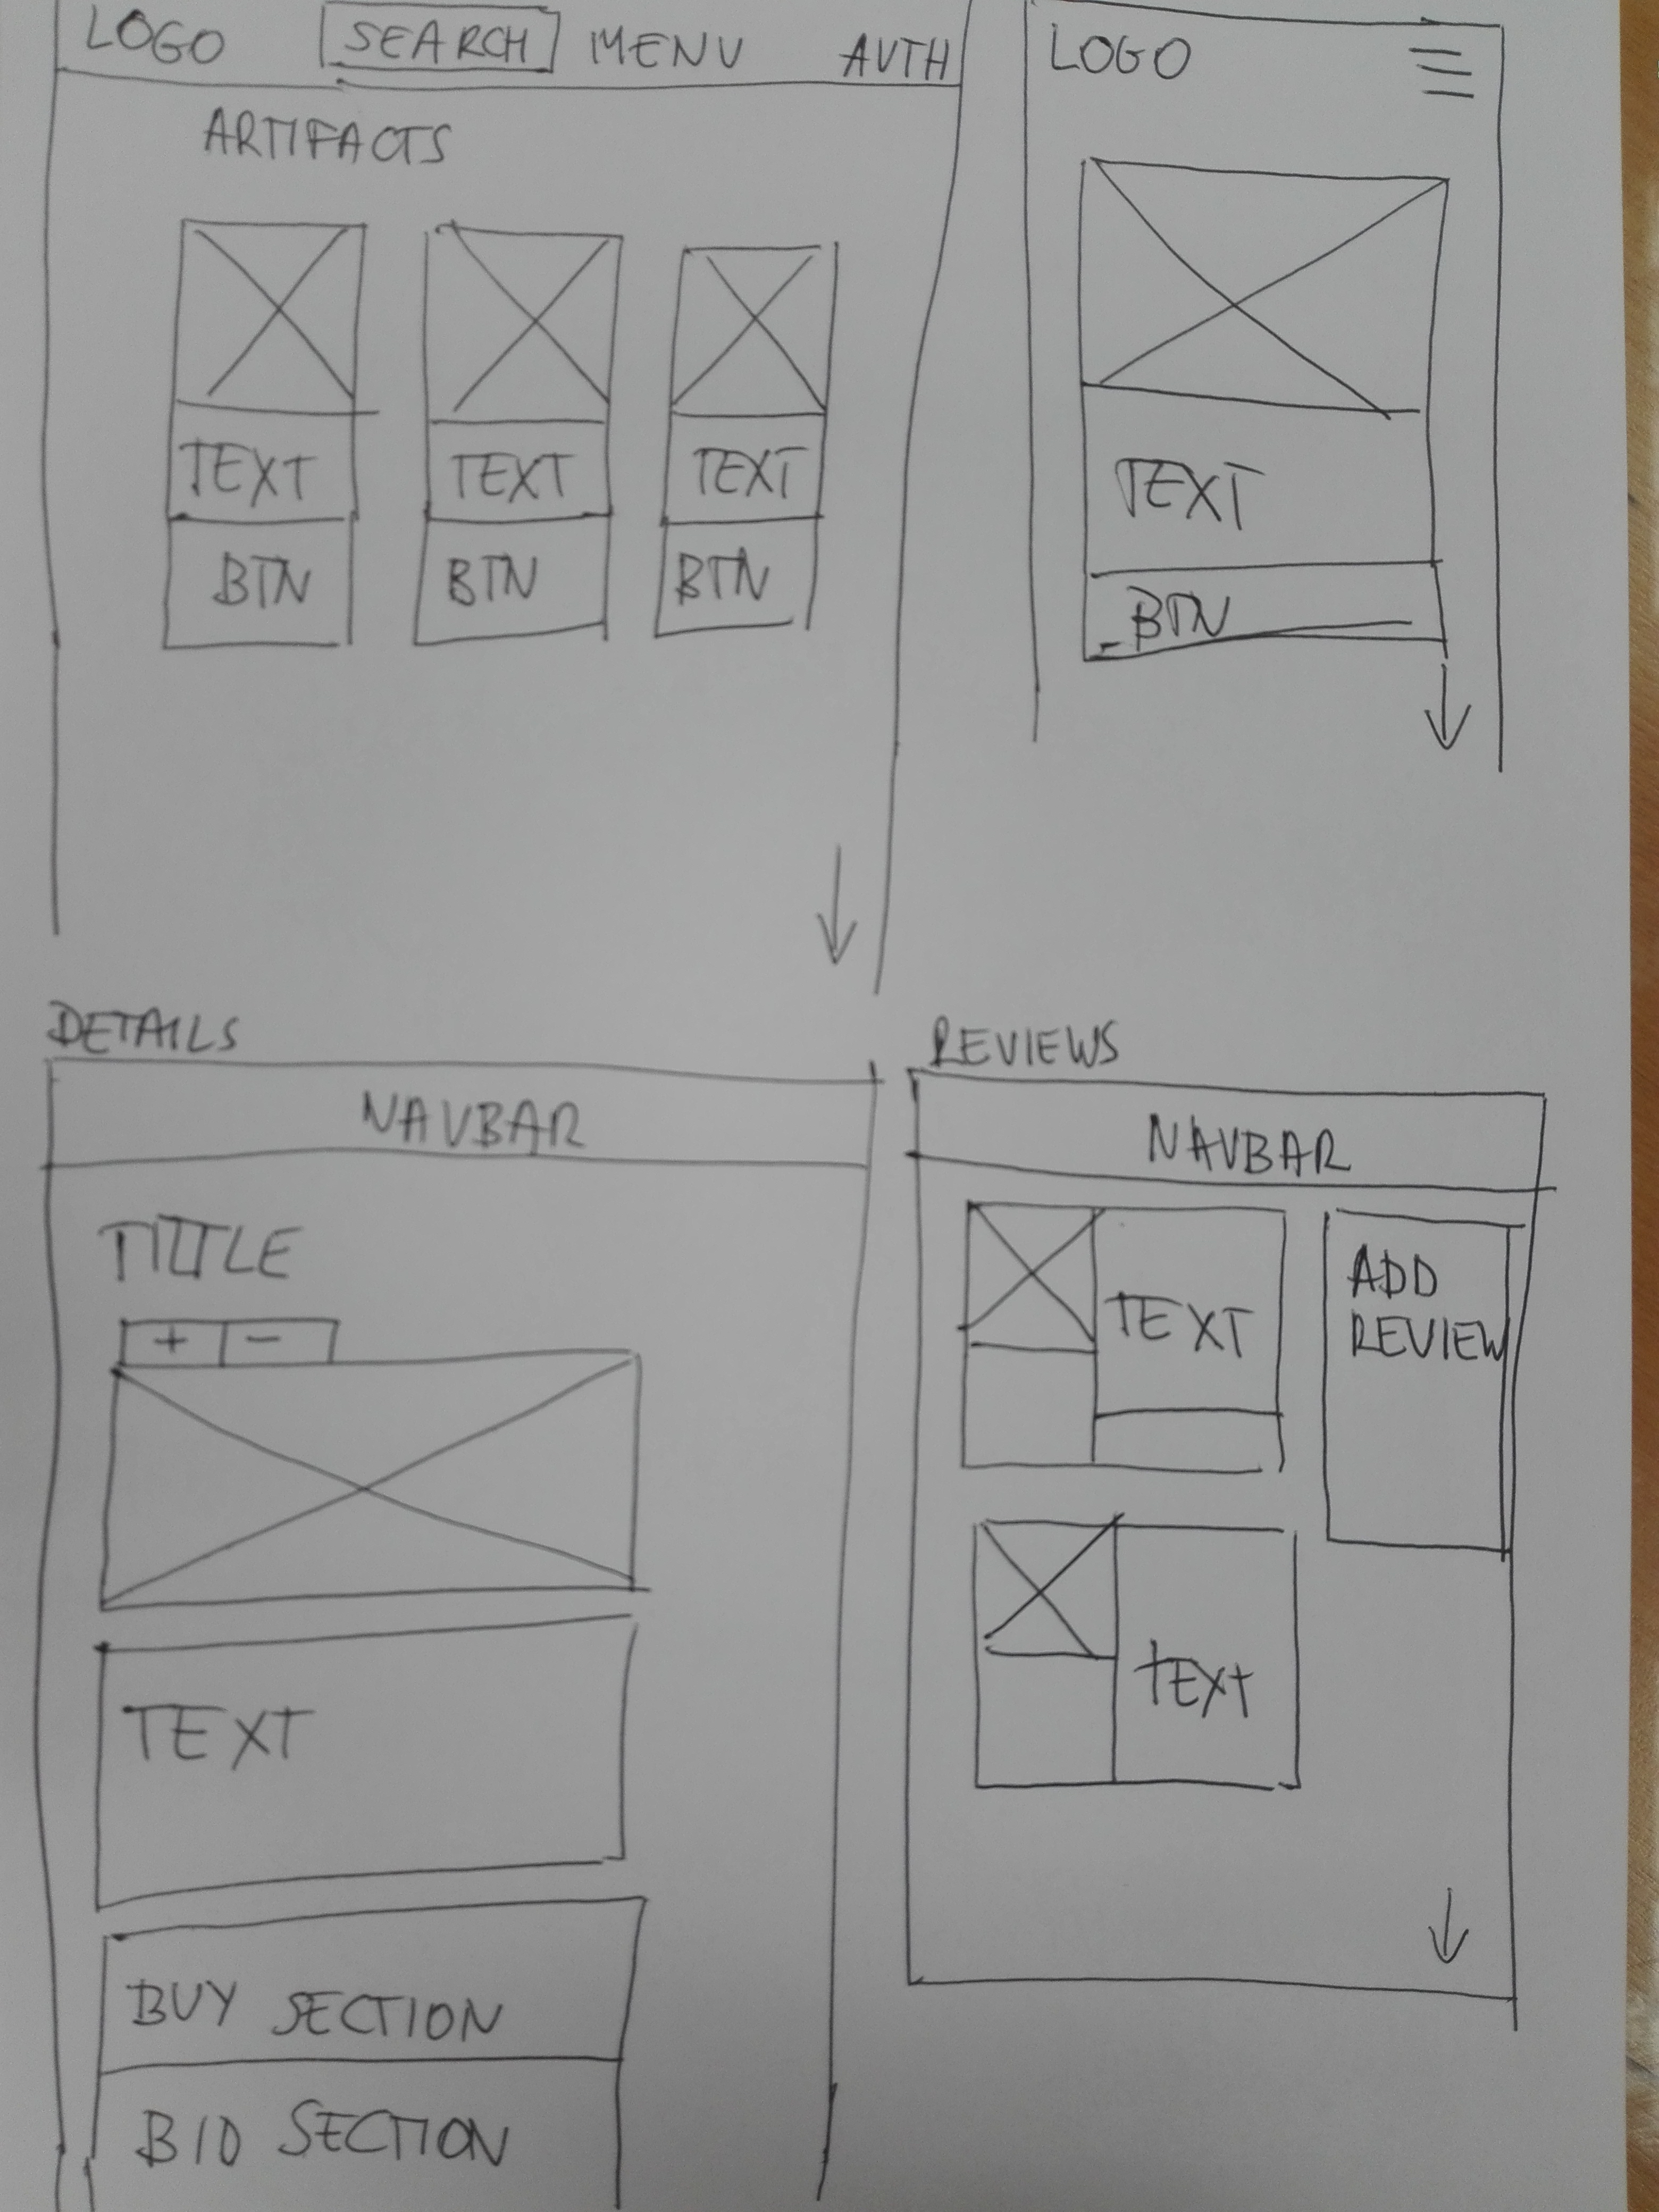 LOGO SEARCH MENU AUTH
ARTIFACTS
TEXT TEXT TEXT
BTN BTN BTN
LOGO
TEXT
BTN
DETAILS
NAVBAR
TITTLE
+ -
TEXT
BUY SECTION
BID SECTION
REVIEWS
NAVBAR
TEXT
ADD
REVIEW
TEXT